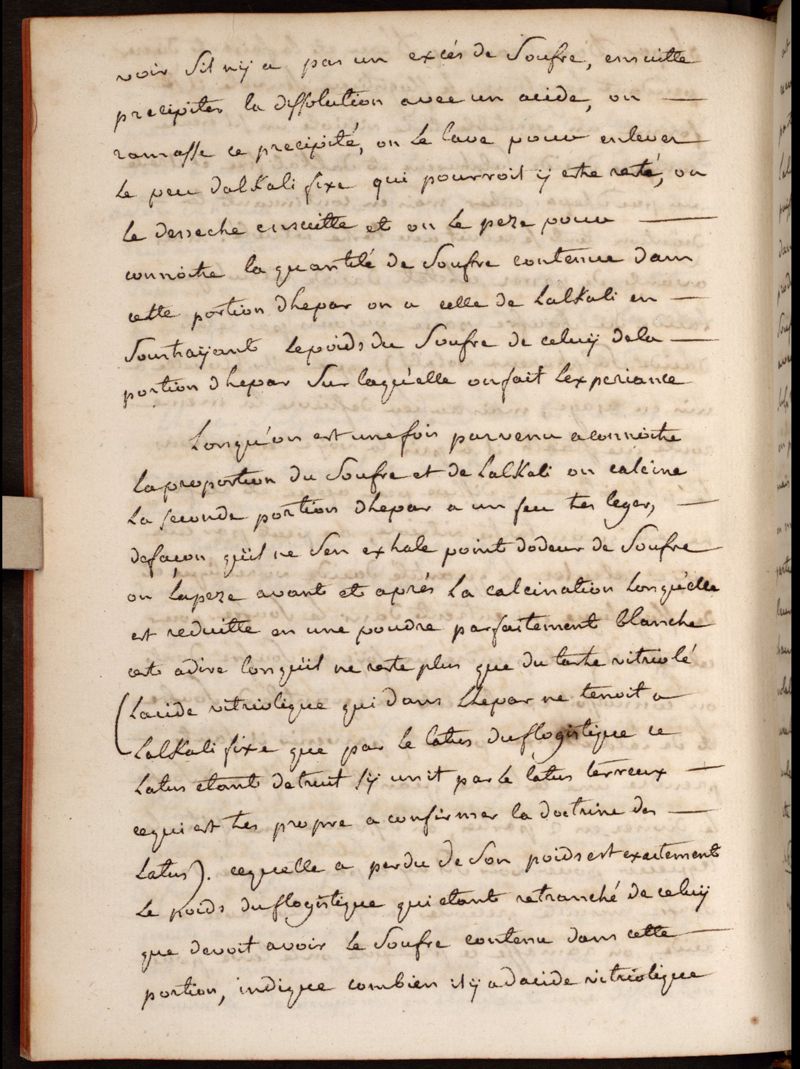 voir s'il n'y a pas un excés de Soufre, ensuitte
precipiter la dissolution avec un acide, on —
ramasse ce precipité, on le lave pour enlever
le peu dalkali fixe qui pourroit ÿ estre resté, on
le desseche ensuitte et on le peze pour —
connoitre la quantité de Soufre contenue dans
cette portion dhepar on a celle de Lalkali en —
Soustraÿant le poids du Soufre de celuÿ dela —
portion dhepar Sur laquelle on fait Lexperiance
Lorsqu'on est une fois parvenu a connoitre
la proportion du Soufre et de Lalkali on calcine
la seconde portion dhepar a un feu tres leger, —
defacon qüil ne Sen exhale point dodeur de Soufre
on la peze avant et aprés la calcination Lorsquelle
est reduitte en une poudre parfaitement blanche
cest adire lorsqüil ne reste plus que du tartre vitriolé
(Lacide vitriolique qui dans Lhepar ne tenoit a
Lalkali fixe que par le latus du flogistique ce
Latus etant detruit s'ÿ unit par le latus terreux —
cequi est tres propre a confirmer la doctrine des —
Latus). cequelle a perdu de Son poids est exactement
le poids du flogistique qui etant retranché de celuÿ
que devoit avoir le Soufre contenu dans cette —
portion, indique combien il ÿ a dacide vitriolique